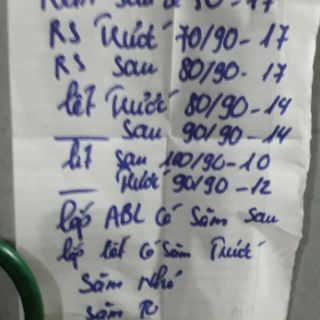 sau 90-17
RS Trước 70/90-17
RS Sau 80/90-17
lét Trước 80/90-14
___ Sau 90/90-14
lit Sau 100/90-10
___ Trước 90/90-12
lốp ABL Có Săm Sau
lốp lét Có Săm Trước
Săm Nhỏ
Săm To